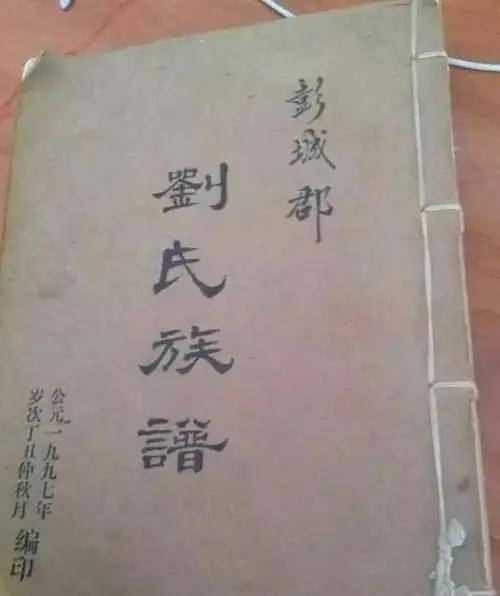 彭城郡
劉氏族譜
公元一九九七年
岁次丁丑仲秋月
编印